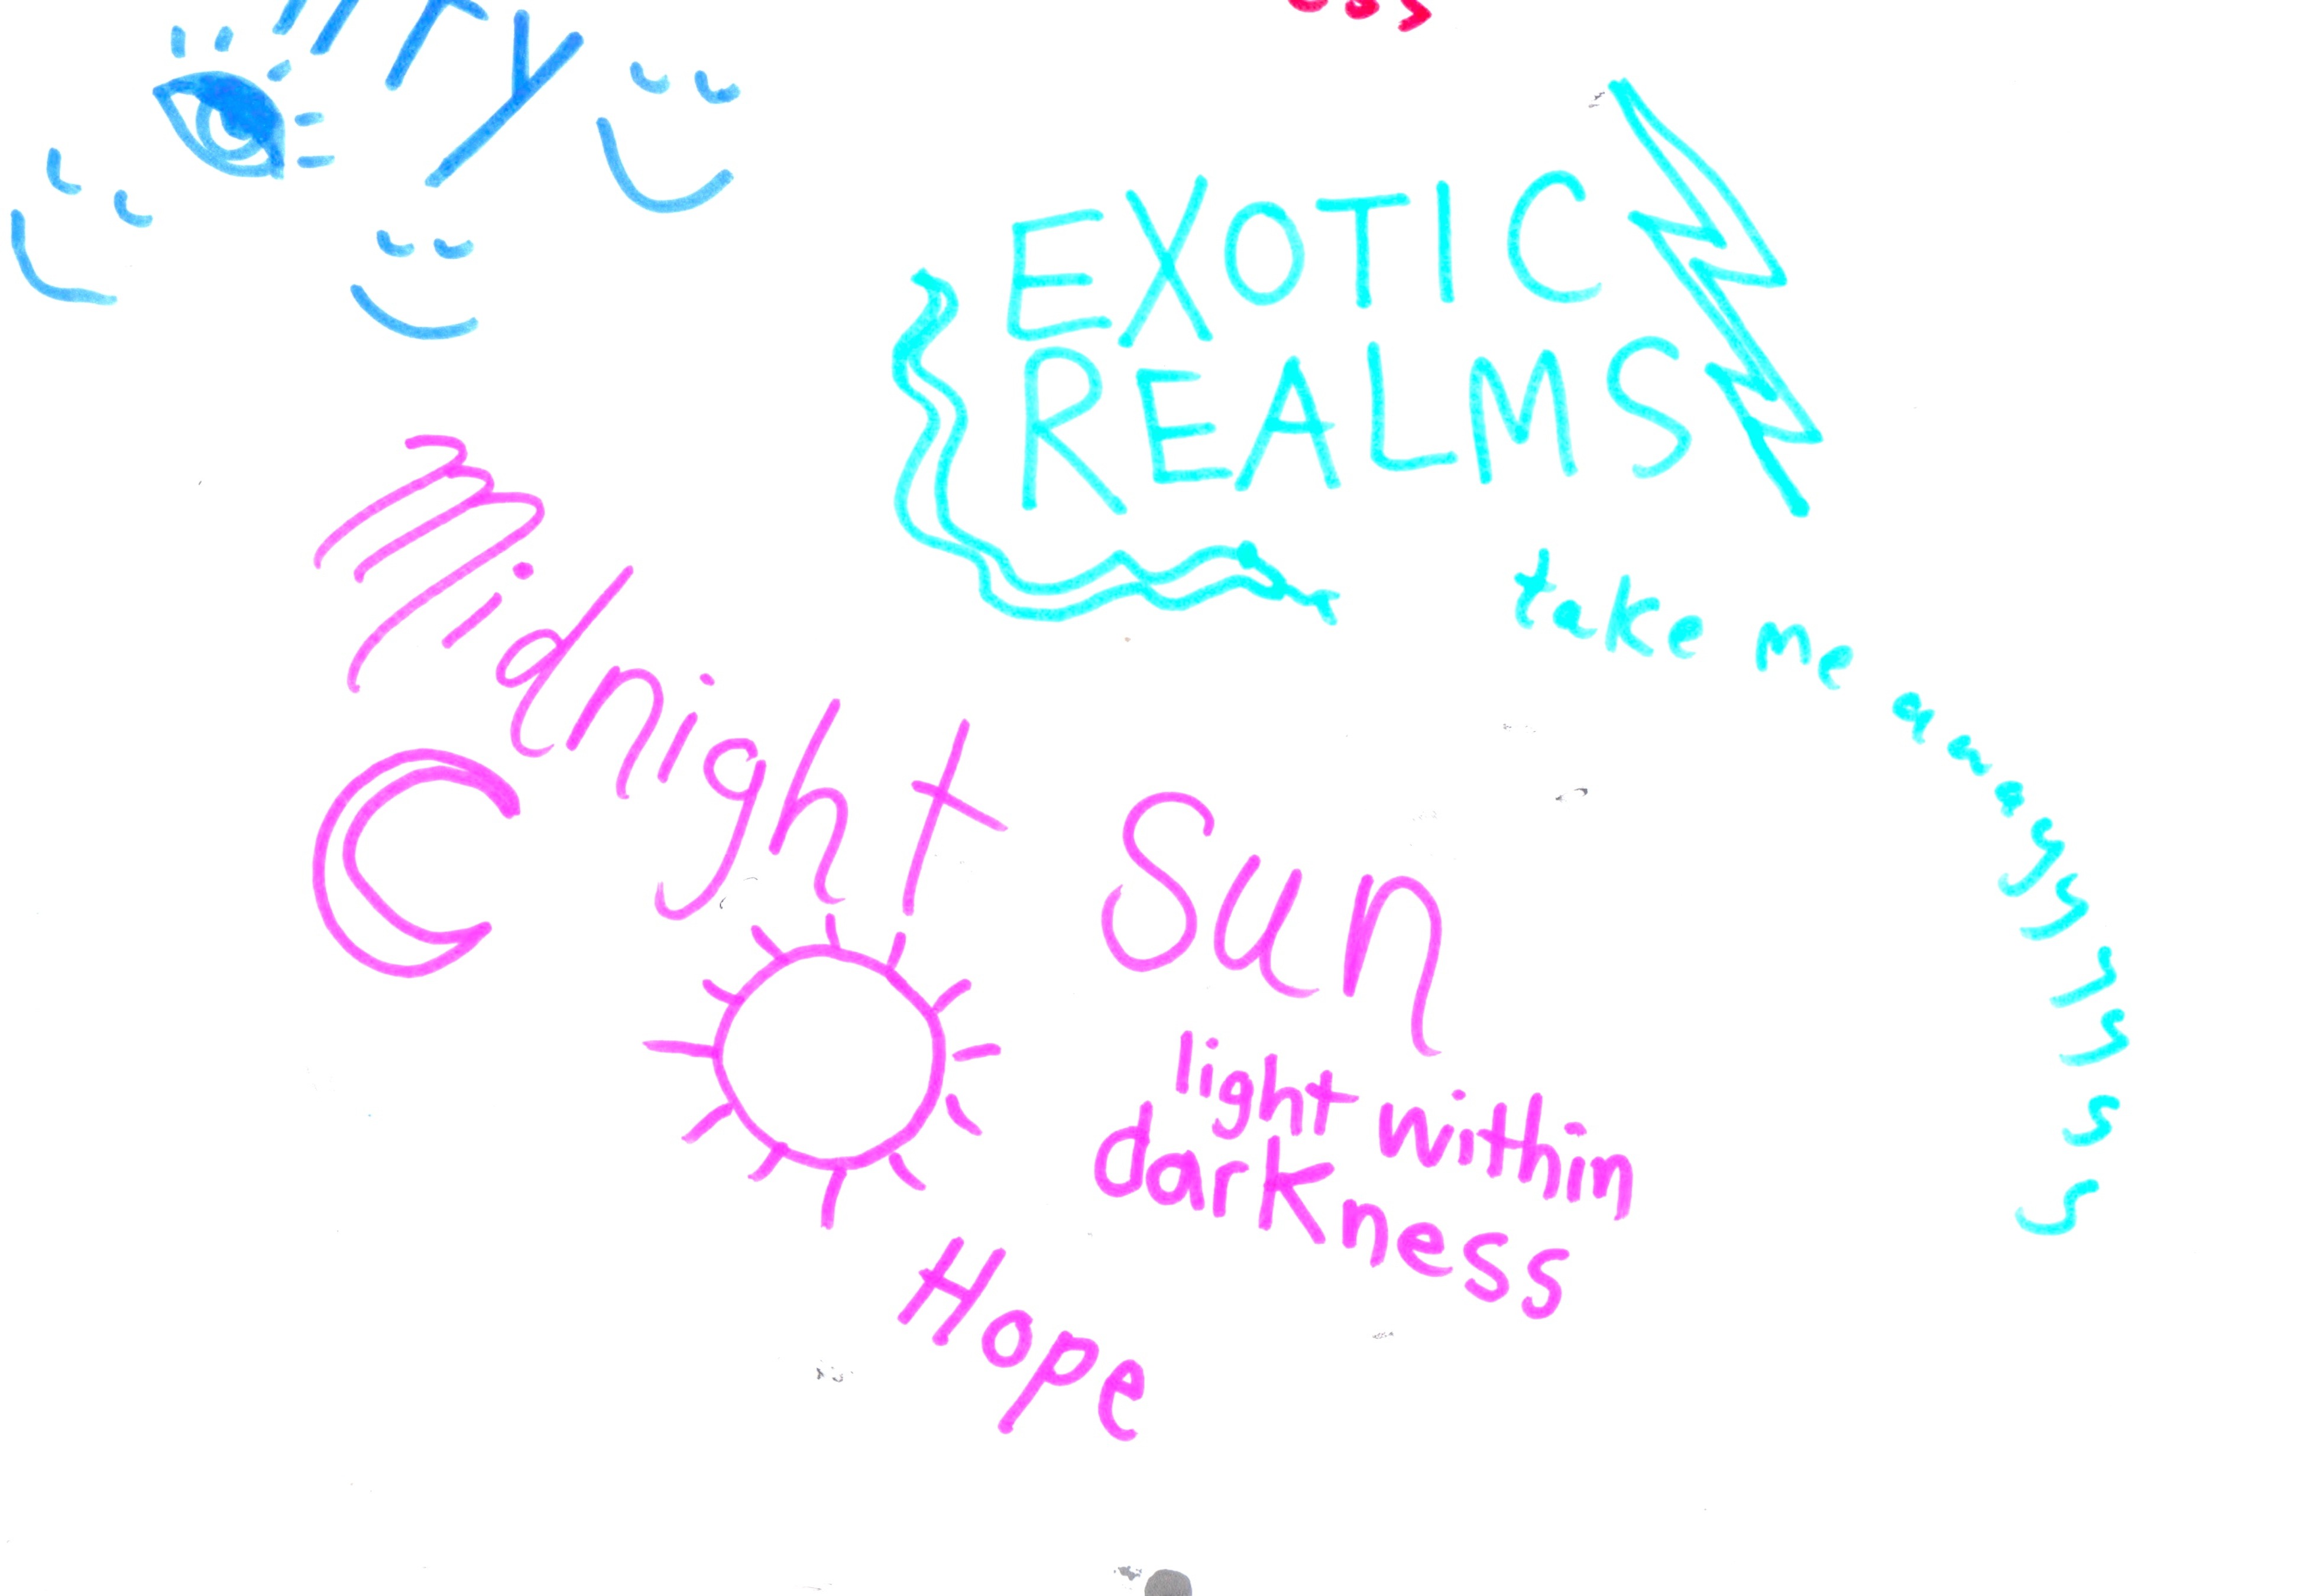 EXOTIC
REALMS
take me awayyyyysss
Midnight Sun
light within
darkness
Hope